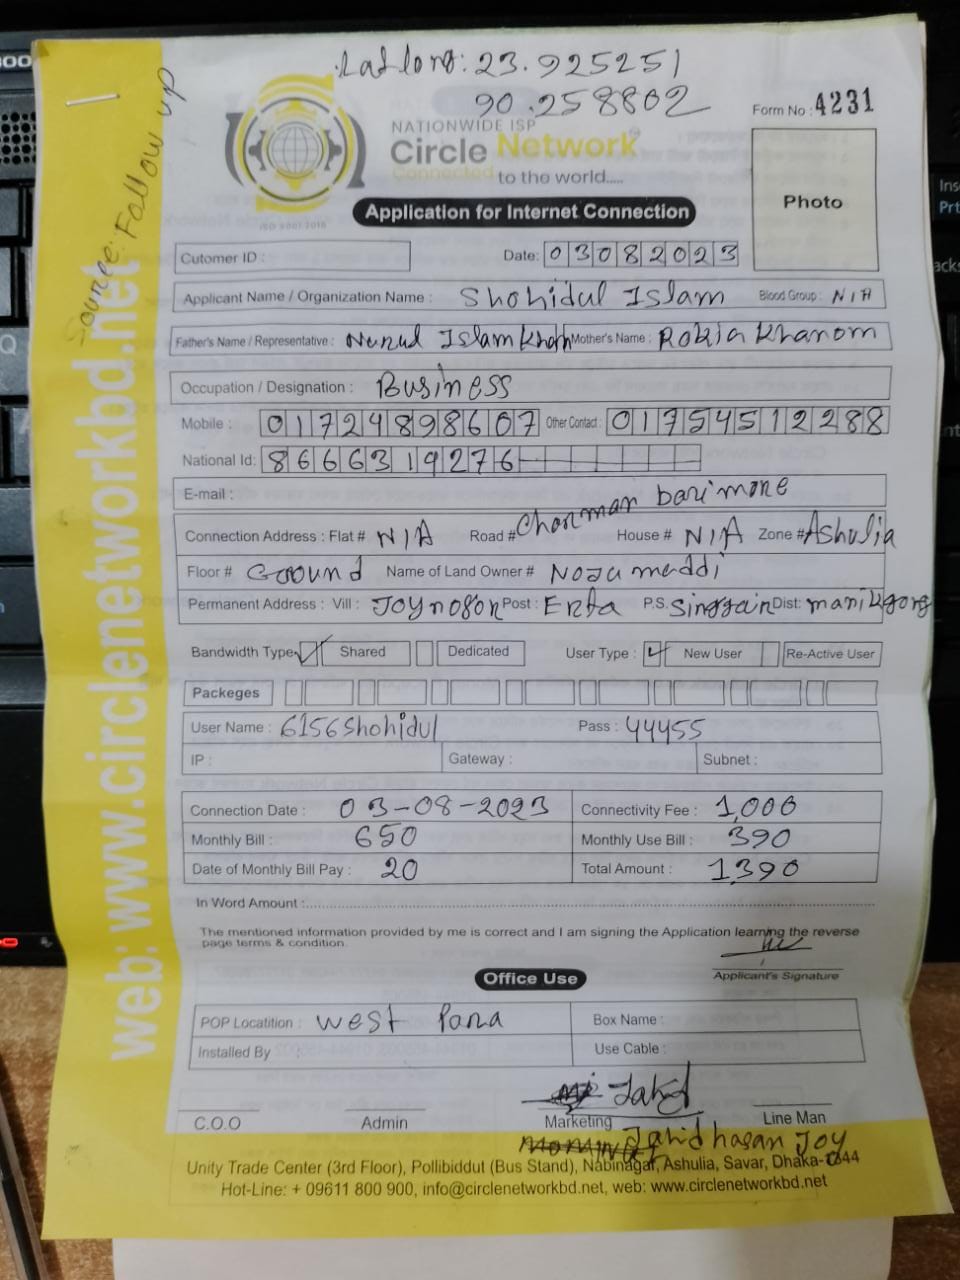 Lat long: 23.925251
90.258802
Source: Follow up
NATIONWIDE ISP
Circle Network
Connected to the world.....
ISO 9001:2015
Form No : 4231
Photo
Application for Internet Connection
Cutomer ID :
Date: 03082023
Applicant Name / Organization Name : Shohidul Islam Blood Group : N/A
Father's Name / Representative : Nurul Islam Khan Mother's Name : Rokia Khanom
Occupation / Designation : Business
Mobile : 01724898607 Other Contact : 01754512288
National Id: 8666319276
E-mail :
Connection Address : Flat # N/A Road # Charman bari more House # N/A Zone # Ashulia
Floor # Ground Name of Land Owner # Nozumoddi
Permanent Address : Vill : Post : P.S. Dist:
Bandwidth Type ✓ Shared Dedicated User Type : ✓ New User Re-Active User
Packeges
User Name : 6156Shohidul Pass : 44455
IP : Gateway : Subnet :
Connection Date : 03-08-2023 Connectivity Fee : 1,000
Monthly Bill : 650 Monthly Use Bill : 390
Date of Monthly Bill Pay : 20 Total Amount : 1,390
In Word Amount :
The mentioned information provided by me is correct and I am signing the Application learning the reverse
page terms & condition.
Applicant's Signature
Office Use
POP Locatition : West Para Box Name :
Installed By Use Cable :
Jahid
C.O.O Admin Marketing Line Man
Jahid hasan Joy
Unity Trade Center (3rd Floor), Pollibiddut (Bus Stand), Nabinagar, Ashulia, Savar, Dhaka-1344
Hot-Line: + 09611 800 900, info@circlenetworkbd.net, web: www.circlenetworkbd.net
web: www.circlenetworkbd.net